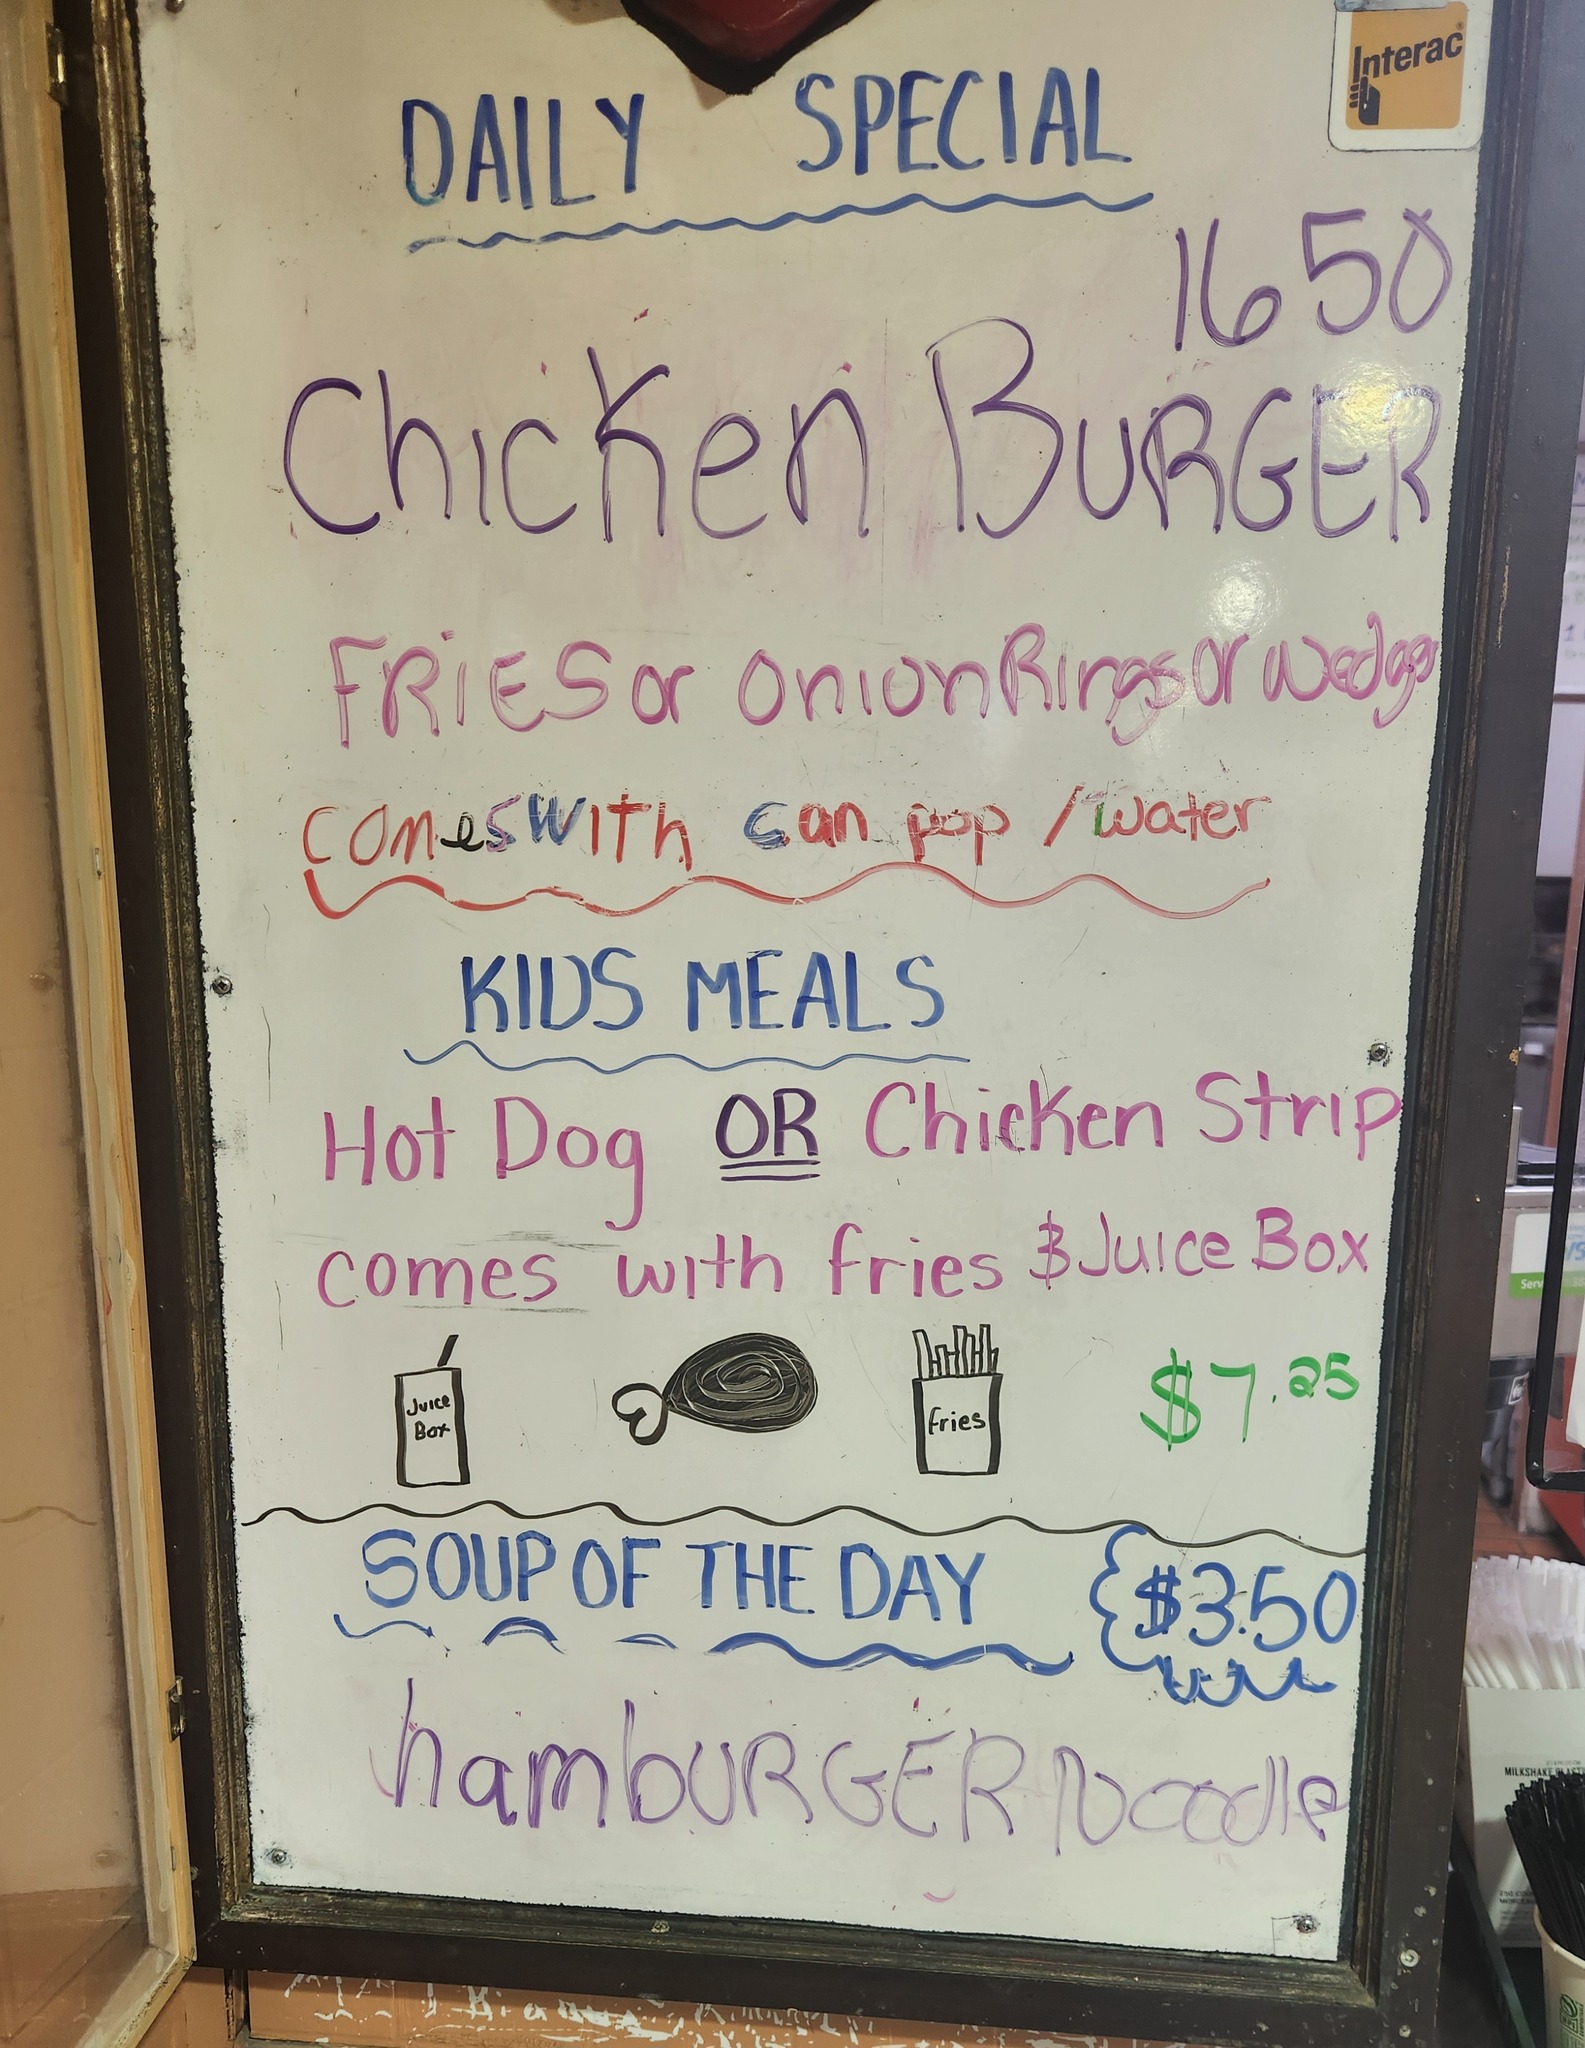 Interac
DAILY SPECIAL
16 50
Chicken BURGER
FRiES or Onion Rings or wedges
comes with can pop / water
KIDS MEALS
Hot Dog OR Chicken Strip
comes with fries & Juice Box
Juice
Box
fries
$7.25
SOUP OF THE DAY $3.50
hambURGER Noodle
MILKSHAKE